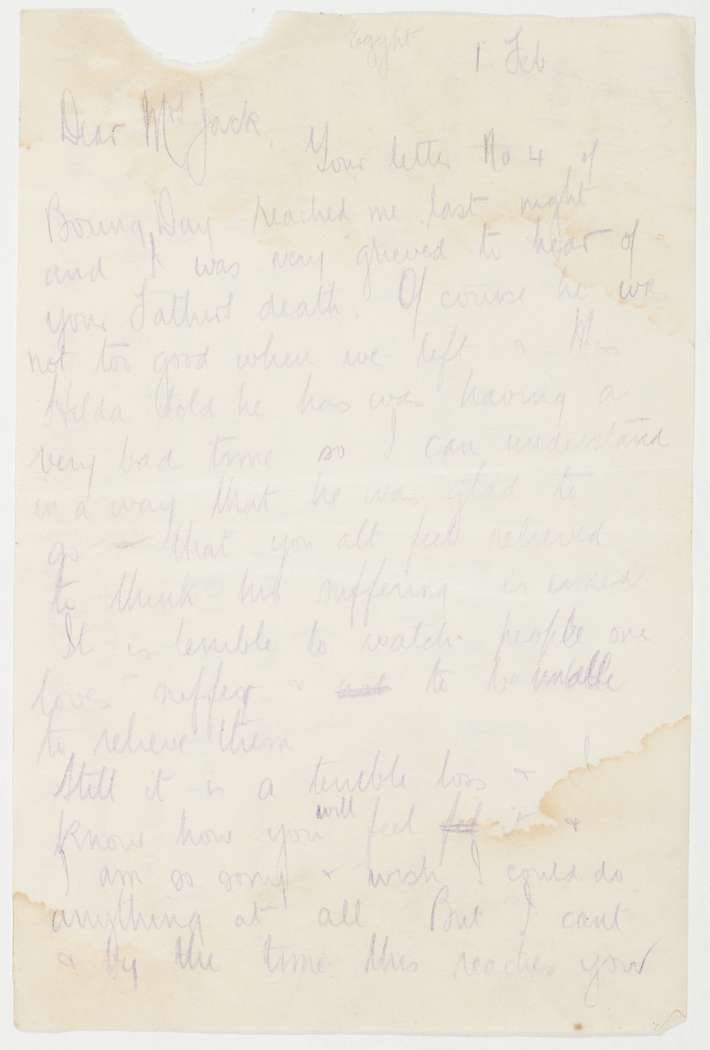 Egypt
1 Feb
Dear Mrs Jack,
Your letter No 4 of
Boxing Day reached me last night
and I was very grieved to hear of
your Fathers death. Of course he was
not too good when we left &
Hilda told he has was having a
very bad time so I can understand
in a way that he was glad to
go - that you all feel relieved
to think his suffering is ended
It is terrible to watch people one
loves suffer & not to be unable
to relieve them
Still it is a terrible loss & I
know how you will feel feel it &
I am so sorry & wish I could do
anything at all. But I cant
& by the time this reaches your